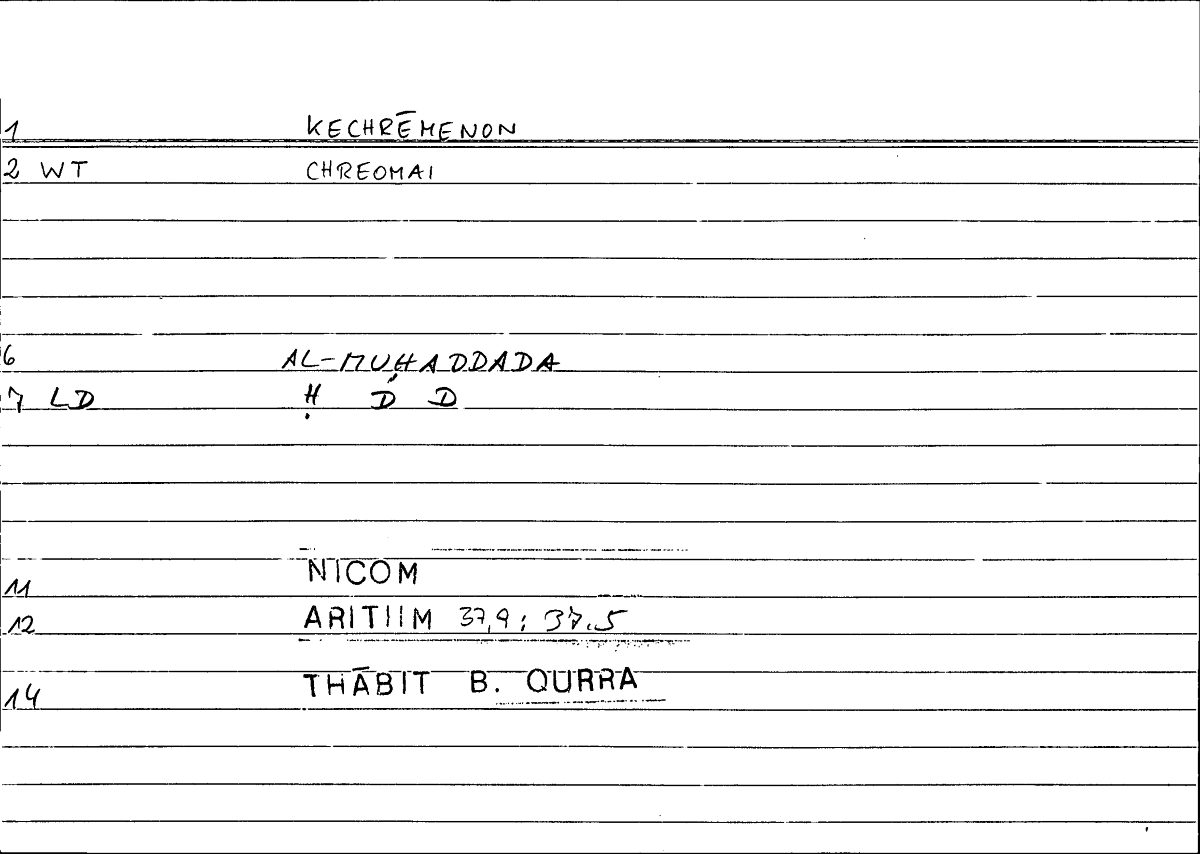 1 KECHRĒMENON
2 WT CHREOMAI
6 AL-MUḤADDADA
7 LD Ḥ D D
11 NICOM
12 ARITIIM 37,9 : 37.5
14 THĀBIT B. QURRA